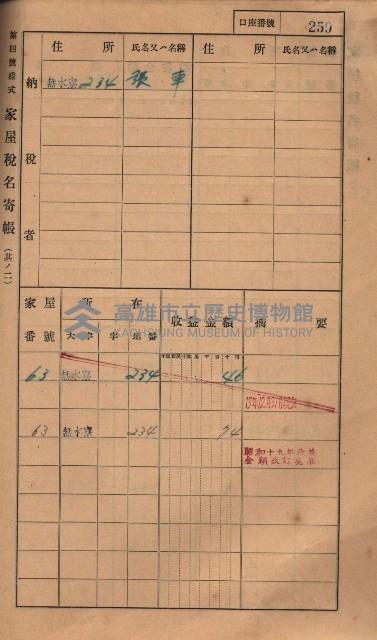 口座番號 259
第四號樣式 家屋稅名寄帳 (其ノ二)
住所 氏名又ハ名稱 住所 氏名又ハ名稱
納稅者
無水寮 234 張車
家屋番號 所在 收益金額 摘要
大字 字 地番
63 無水寮 234 46
63 無水寮 234 74
昭和十九年收益
金額改訂
高雄市立歷史博物館
KAOHSIUNG MUSEUM OF HISTORY